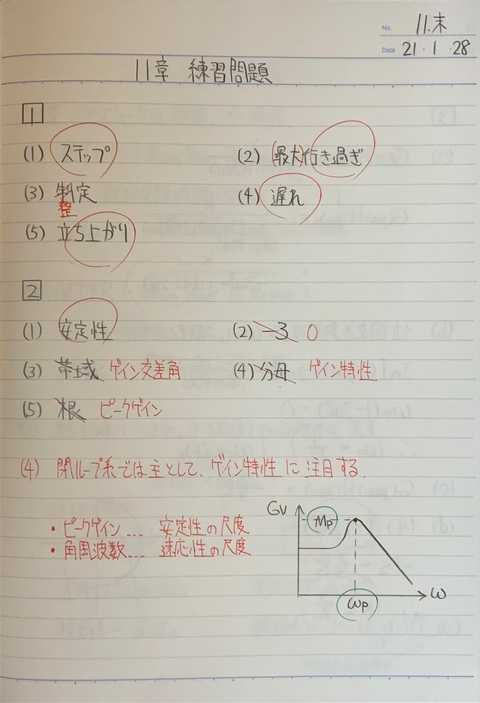 No. 11.末
Date 21・1・28
11章 練習問題
1
(1) ステップ (2) (最大)行き過ぎ
(3)制定 (4) 遅れ
整
(5) 立ち上がり
2
(1) 安定性 (2) -3 0
(3) 帯域 ゲイン交差角 (4) 分母 ゲイン特性
(5) 根 ピークゲイン
(4) 閉ループ系では主として、ゲイン特性に注目する.
・ピークゲイン… 安定性の尺度
・角周波数… 速応性の尺度
GV
Mp
ω
ωp